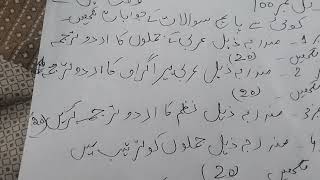 کل نمبر 100
کوئی سے پانچ سوالات کے جوابات لکھیں۔
1۔ مندرجہ ذیل عربی کے جملوں کا اردو ترجمہ
لکھیں (20)
2۔ مندرجہ ذیل عربی پیراگراف کا اردو ترجمہ
لکھیں (20)
3۔ مندرجہ ذیل نظم کا اردو ترجمہ کریں (20)
4۔ مندرجہ ذیل جملوں کو ترتیب میں
لکھیں (20)